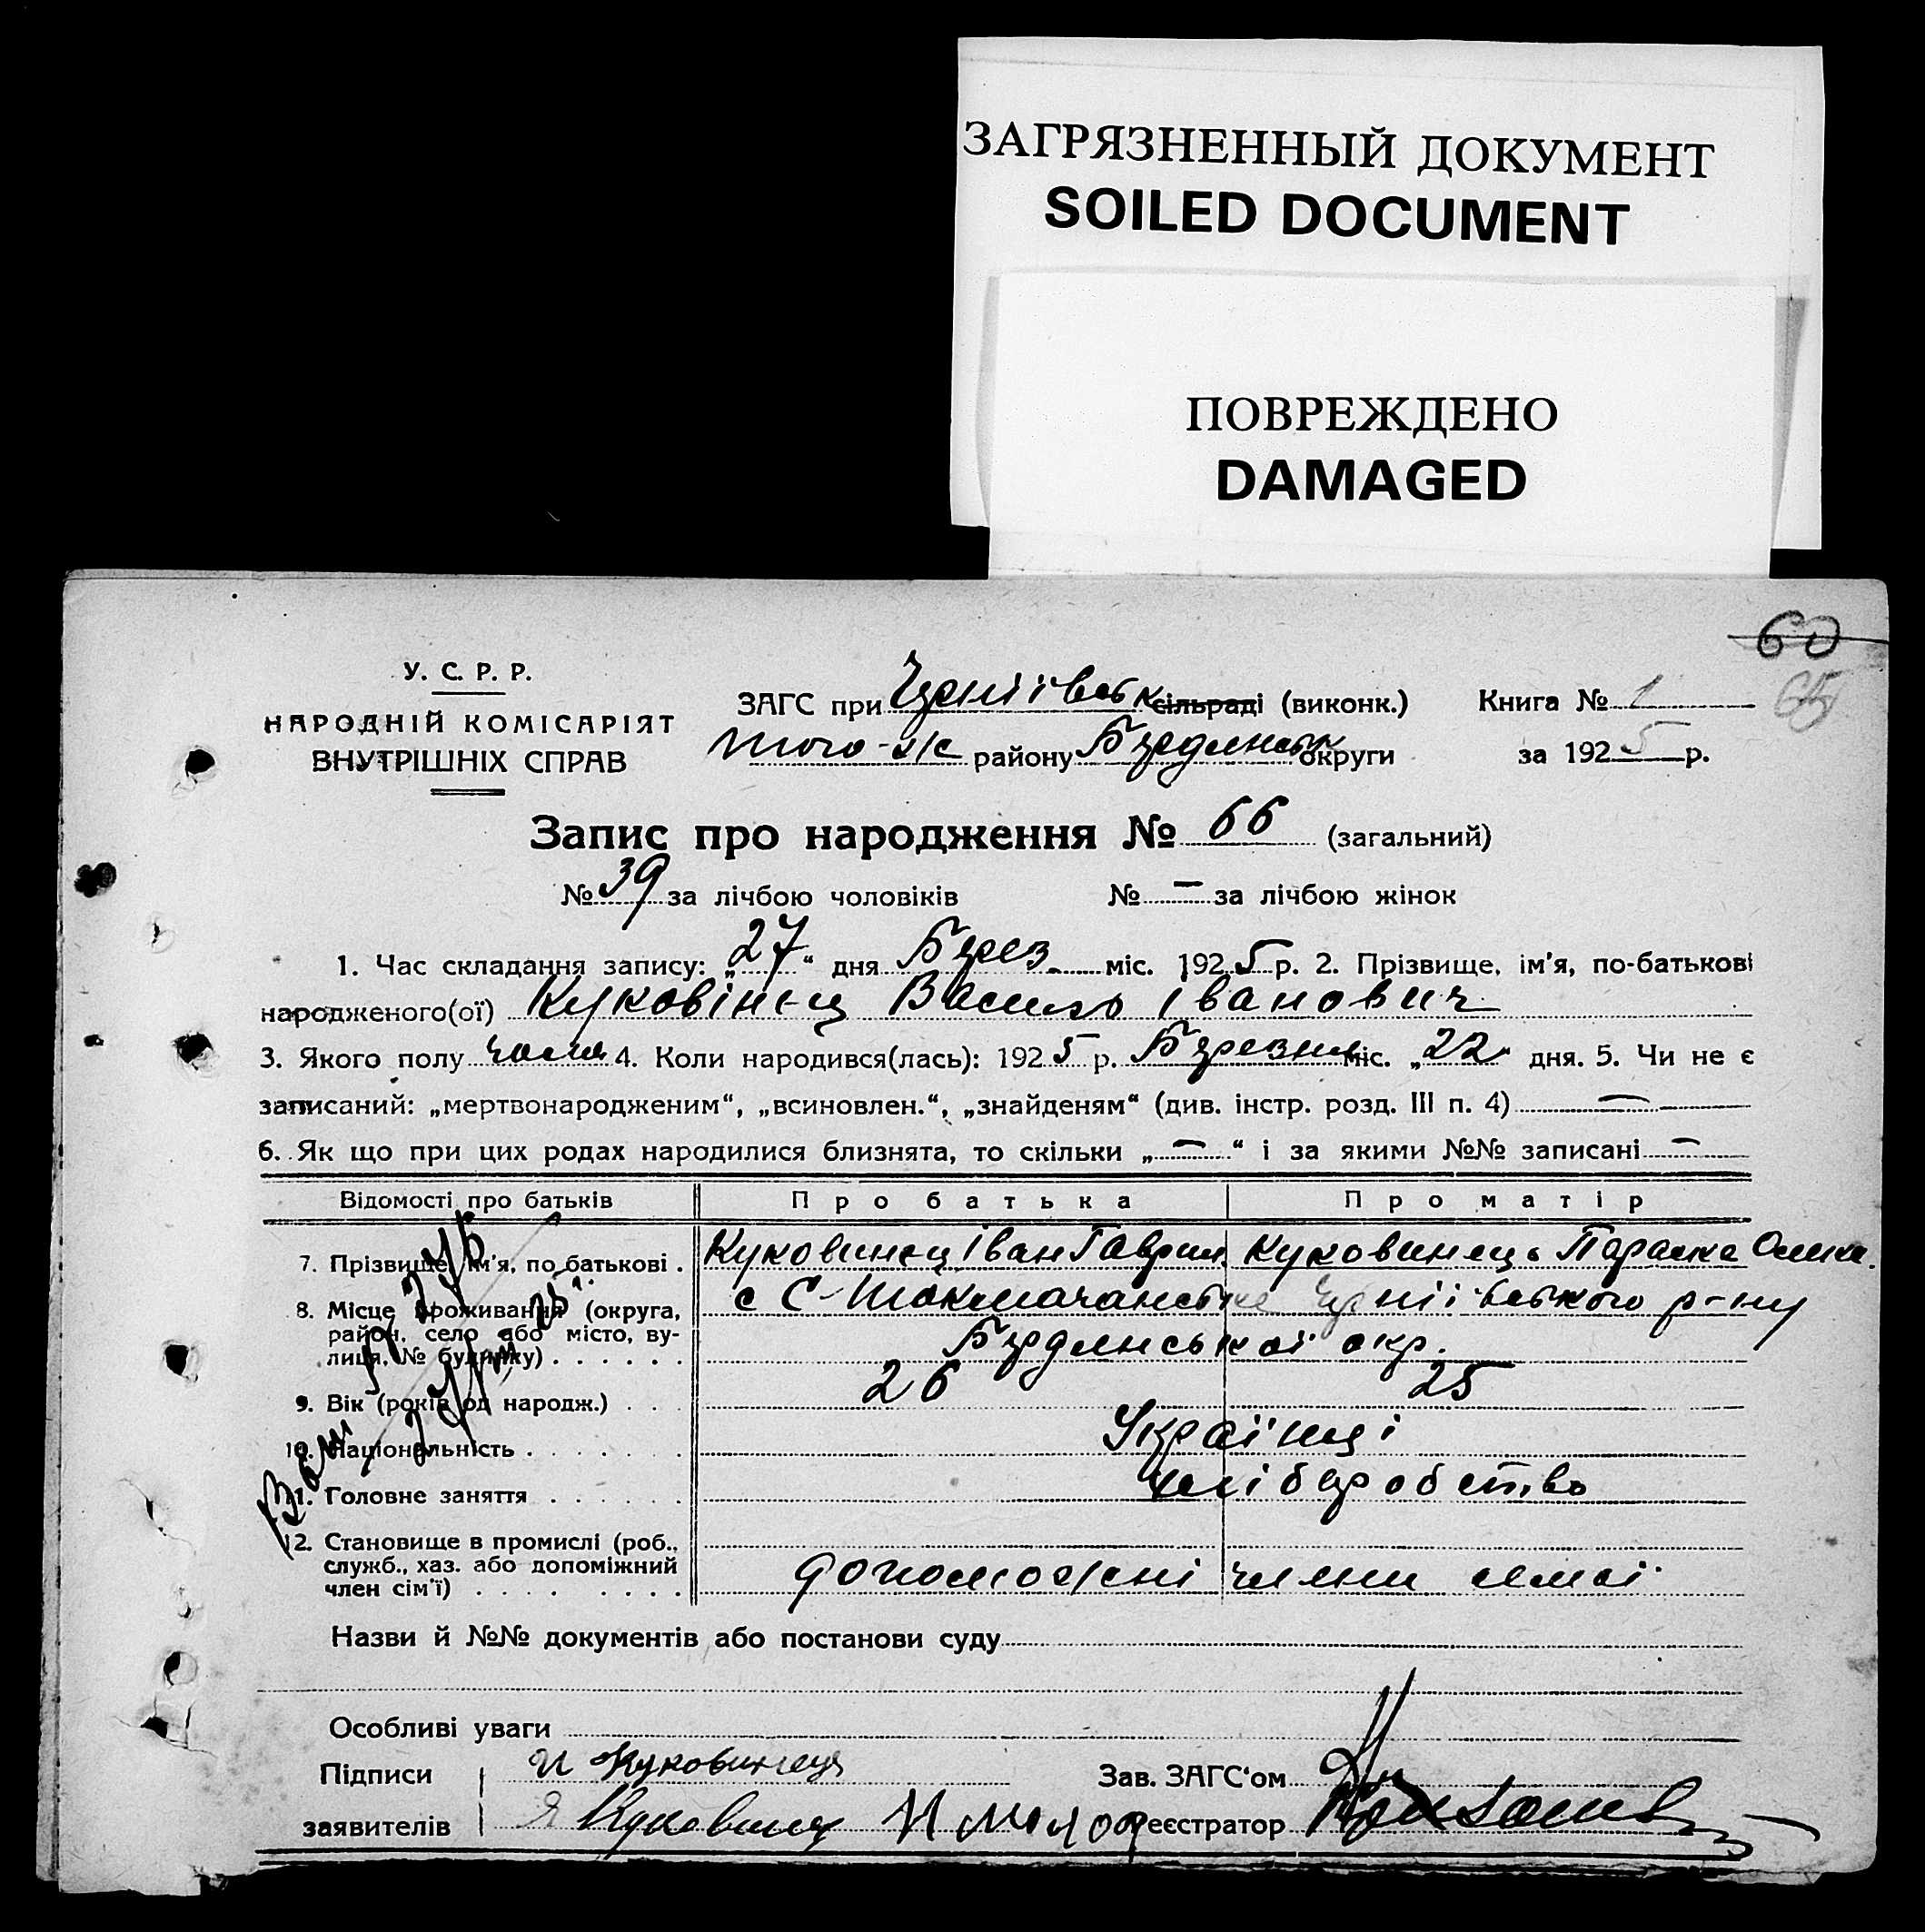 ЗАГРЯЗНЕННЫЙ ДОКУМЕНТ
SOILED DOCUMENT
ПОВРЕЖДЕНО
DAMAGED
60
65
У. С. Р. Р.
НАРОДНІЙ КОМІСАРІЯТ
ВНУТРІШНІХ СПРАВ
ЗАГС при Черніївськ сільраді (виконк.) Книга № 1
того-ж району Бердянськ округи за 1925 р.
Запис про народження № 66 (загальний)
№ 39 за лічбою чоловіків № — за лічбою жінок
1. Час складання запису: „27“ дня Берез. міс. 1925 р. 2. Прізвище, ім'я, по-батькові
народженого(ої) Куковінец Василь Іванович
3. Якого полу 4. Коли народився(лась): 1925 р. Березня міс. „22“ дня. 5. Чи не є
записаний: „мертвонародженим“, „всиновлен.“, „знайденям“ (див. інстр. розд. III п. 4) —
6. Як що при цих родах народилися близнята, то скільки „—“ і за якими №№ записані —
Відомості про батьків Про батька Про матір
7. Прізвище, ім'я, по батькові . Куковинец Іван Гаврил. Куковинець Параска
8. Місце проживання (округа, район, село або місто, вулиця, № будинку) . . . . . . с С-Токмачанськ р-ну
Бердянської окр.
9. Вік (років од народж.) . . . 26 25
10. Національність . . . . . . Українці
11. Головне заняття . . . . . . хліберобство
12. Становище в промислі (роб.,
служб., хаз. або допоміжний
член сім'ї) . . . . . . . . допоможні члени
Назви й №№ документів або постанови суду
Особливі уваги
Підписи И Куковинец Зав. ЗАГС'ом
заявителів Я Реєстратор